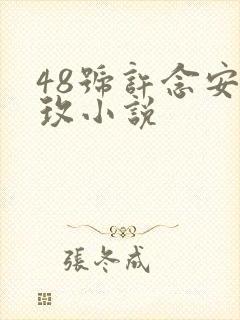 48號許念安
玫小説
張冬成